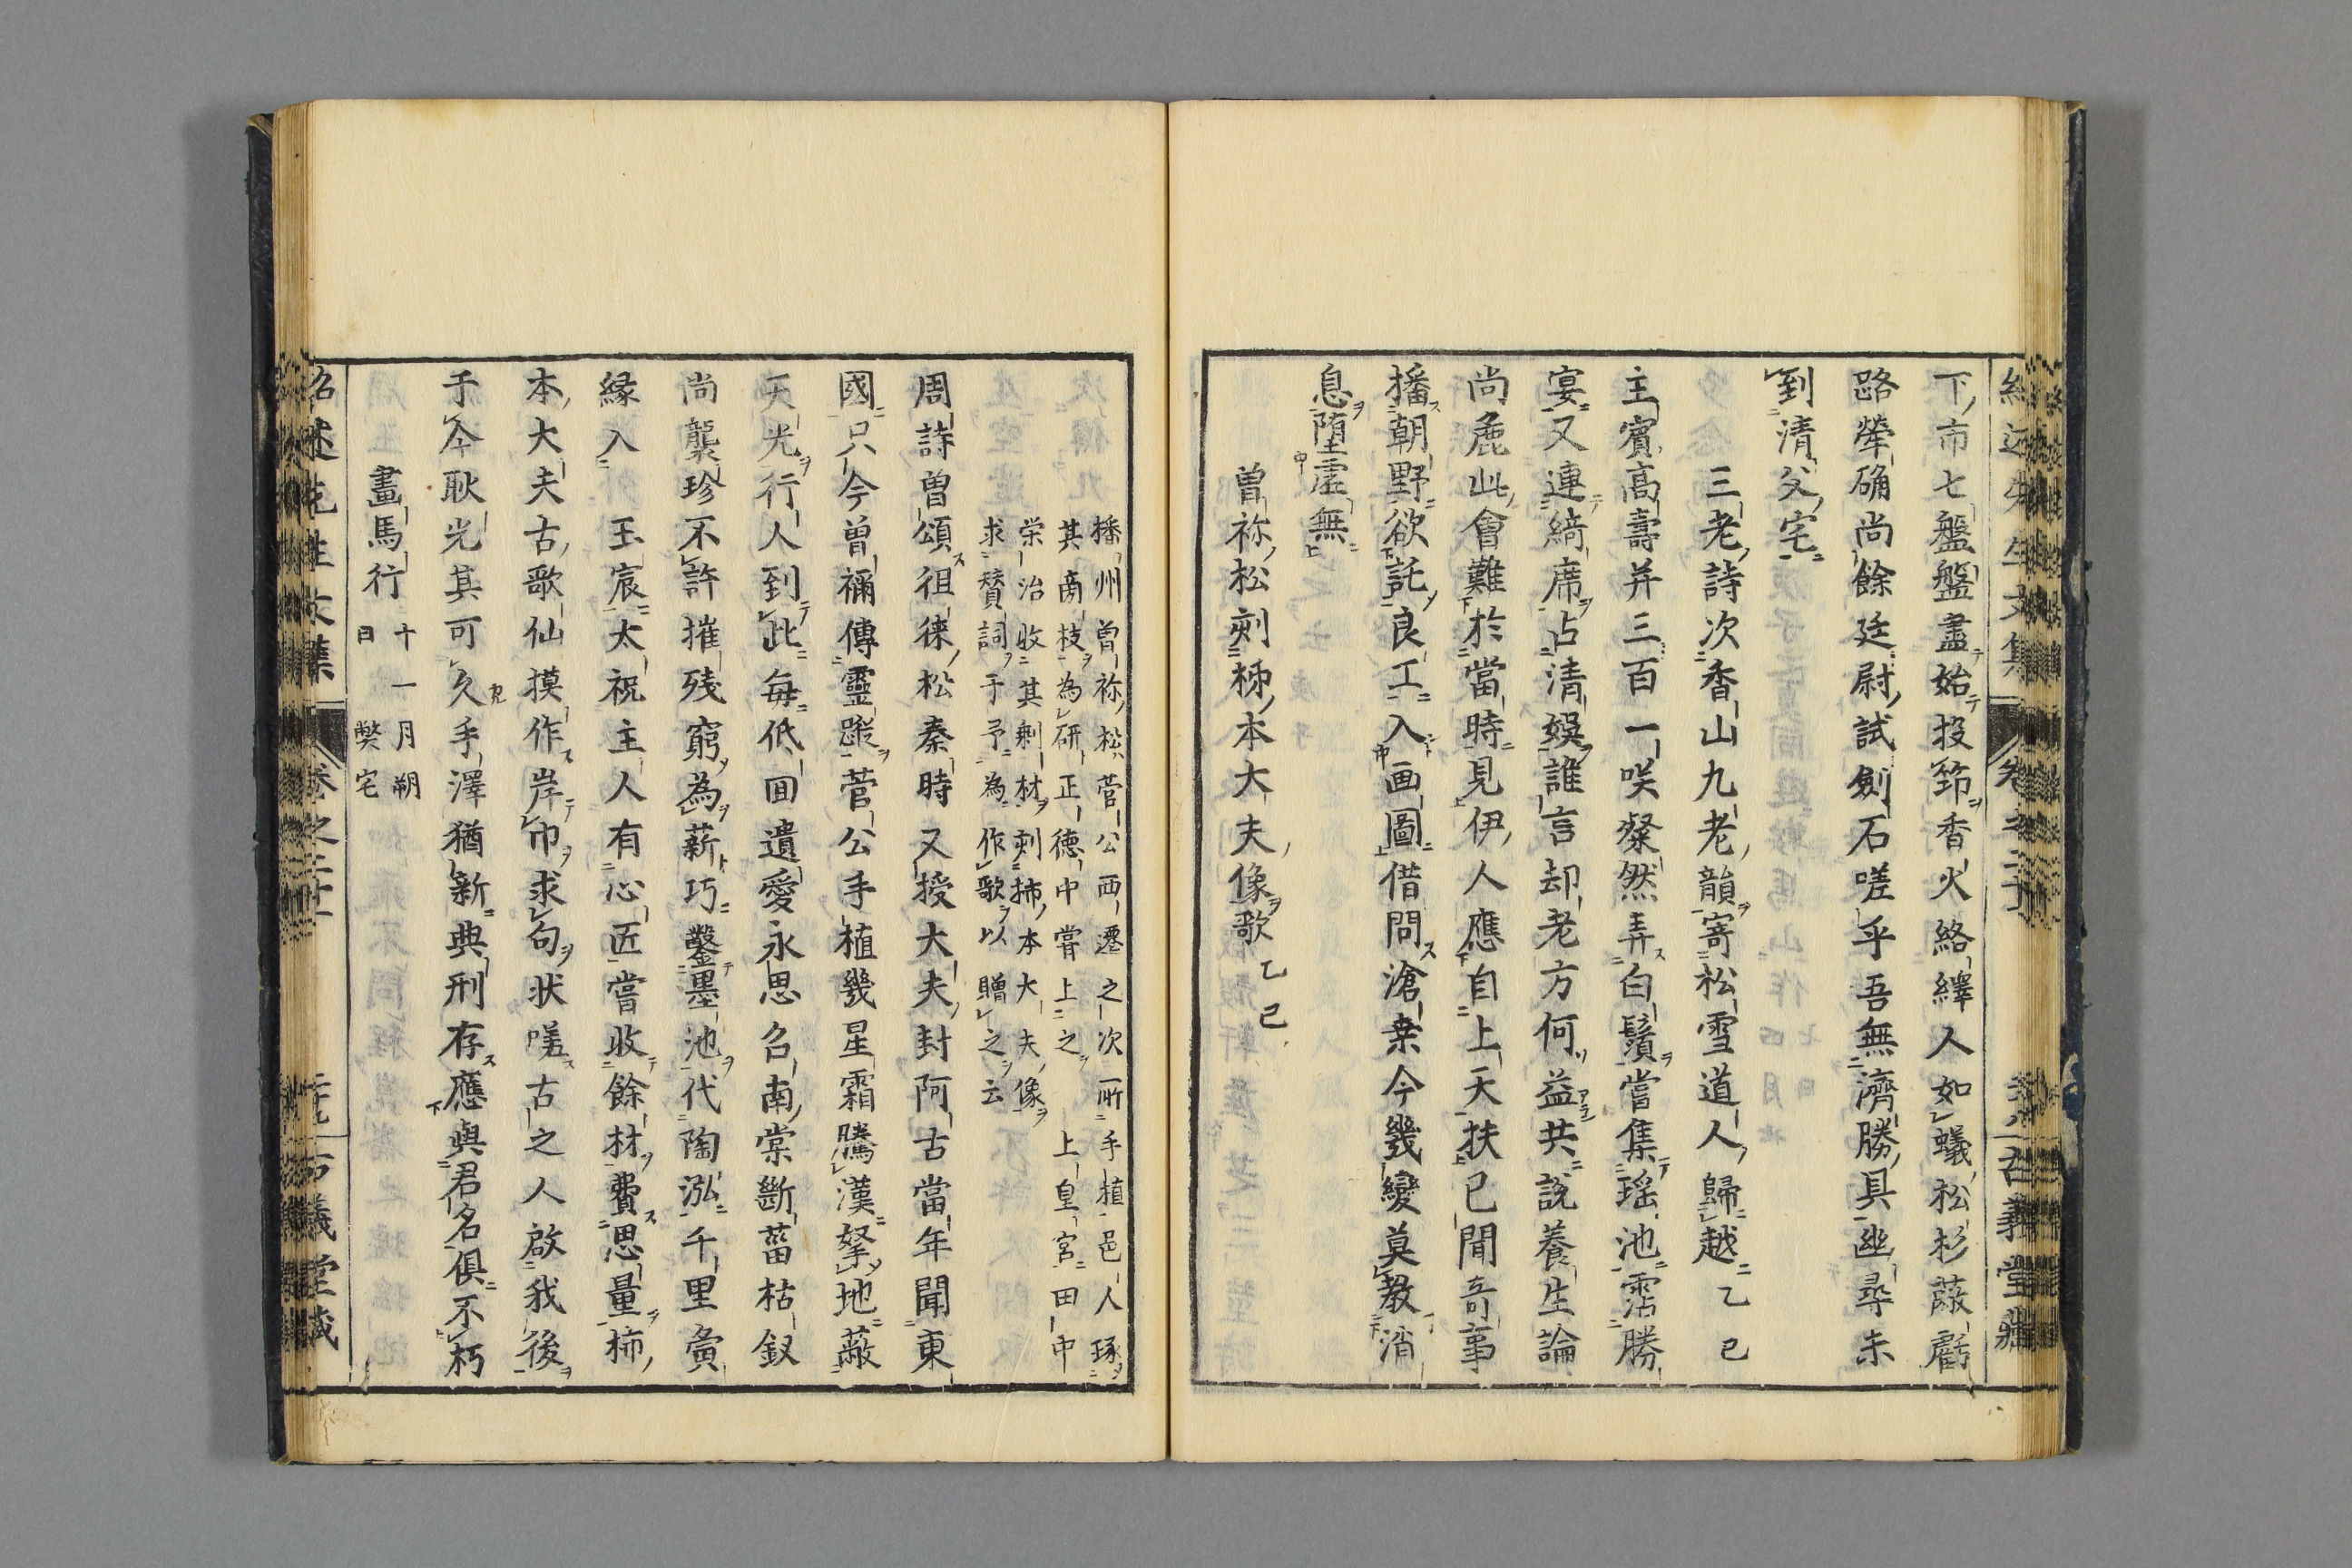 下市七盤盤盡始投筇香火絡繹人如蟻松杉蔽虧
路犖确尚餘廷尉試劍石嗟乎吾無濟勝具幽尋未
到清父宅
三老詩次香山九老韻寄松雪道人歸越 乙巳
主賓高壽并三百一咲粲然弄白鬚嘗集瑶池霑勝
宴又連綺席占清娯誰言却老方何益共説養生論
尚麁此會難於當時見伊人應自上天扶已聞奇事
播朝野欲託良工入画圖借問滄桒今幾變莫教消
息堕虚無
曽祢松刻柹本大夫像歌 乙巳
播州曽祢松菅公西遷之次所手植邑人琢
其啇枝為研正徳中嘗上之 上皇宮田中
栄治收其剰材刻柿本大夫像
求賛詞于予為作歌以贈之云
周詩曽頌徂徠松秦時又授大夫封阿古當年聞東
國只今曽禰傳靈蹤菅公手植幾星霜騰漢拏地蔽
天光行人到此毎低囬遺愛永思召南棠斷菑枯釵
尚襲珍不許摧残窮為薪巧鑿墨池代陶泓千里夤
縁入 玉宸太祝主人有心匠嘗收餘材費思量柿
本大夫古歌仙摸作岸巾求句状嗟古之人啟我後
于今耿光其可久手澤猶新典刑存應與君名俱不朽
畫馬行 十一月朔
日 獘宅
紹述先生文集 卷之二十 古義堂藏